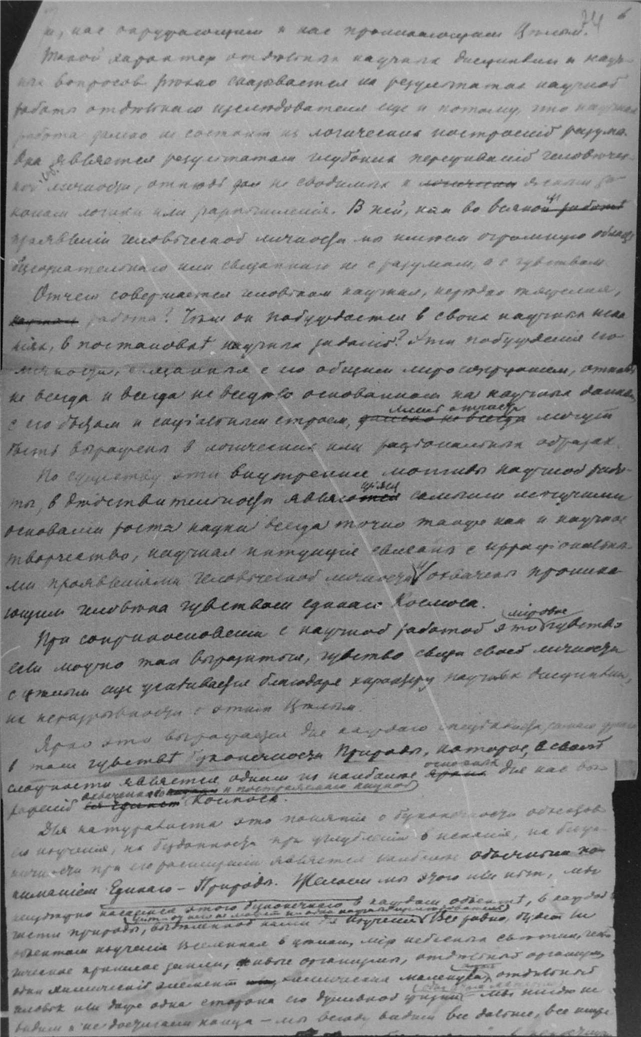 и, нас окружающим и нас проникающим Целым.
Такой характер отдельных научных дисциплин и науч-
ных вопросов резко сказывается на результатах научной
работы отдельного исследователя еще и потому, что научная
работа далеко не состоит из логических построений разума.
Она является результатом глубоких переживаний человечес-
кой личности, отнюдь не сводимых к логически ясным за-
конам логики или размышления. В ней, как во всяком работе
проявлении человеческой личности мы имеем огромную область
бессознательного или связанного не с разумом, а с чувством.
Отчего совершается человеком научная, нередко тяжелая,
работа? Чем он побуждается в своих научных иска-
ниях, в постановке научных заданий? Эти побуждения его
личности, связанные с его общим миросозерцанием,
не всегда и всегда не всецело основанном на научных данных,
с его бытом и социальным строем, лишь отчасти могут
быть выражены в логических или рациональных образах.
По существу эти внутренние мотивы научной рабо-
ты, в действительности являющиеся самыми могучими
основами роста науки всегда точно также как и научное
творчество, научная интуиция связаны с иррациональны-
ми проявлениями человеческой личности, охвачены проника-
ющим человека чувством единаго Космоса.
При соприкосновении с научной работой это мировое чувство
если можно так выразиться, чувство связи своей личности
с целым еще усиливается благодаря характеру научных дисциплин,
их неразрывности с этим Целым.
Ярко это выражается для каждаго специалиста
в том чувстве бесконечности Природы, которое, в своей
сущности является одним из наиболее основных для нас выра-
жений Космоса.
Для натуралиста это понятие о бесконечности объектов
его изучения, их бездонности при углублении в искания, их беско-
нечности при его расширении является наиболее обычным по-
ниманием Единаго – Природы. Желаем мы этого или нет, мы
неизбежно касаемся этого бесконечного в каждом объекте, в каждой
части природы, выделенной нами для изучения. Все равно, будет ли
объектом изучения Вселенная в целом, мир небесных светил,
земли, живые организмы, отдельный организм,
один химический элемент, химическая молекула, отдельный
человек или даже одна сторона его духовной жизни – мы нигде не
видим и не достигаем конца – мы всегда видим все дальше, все шире